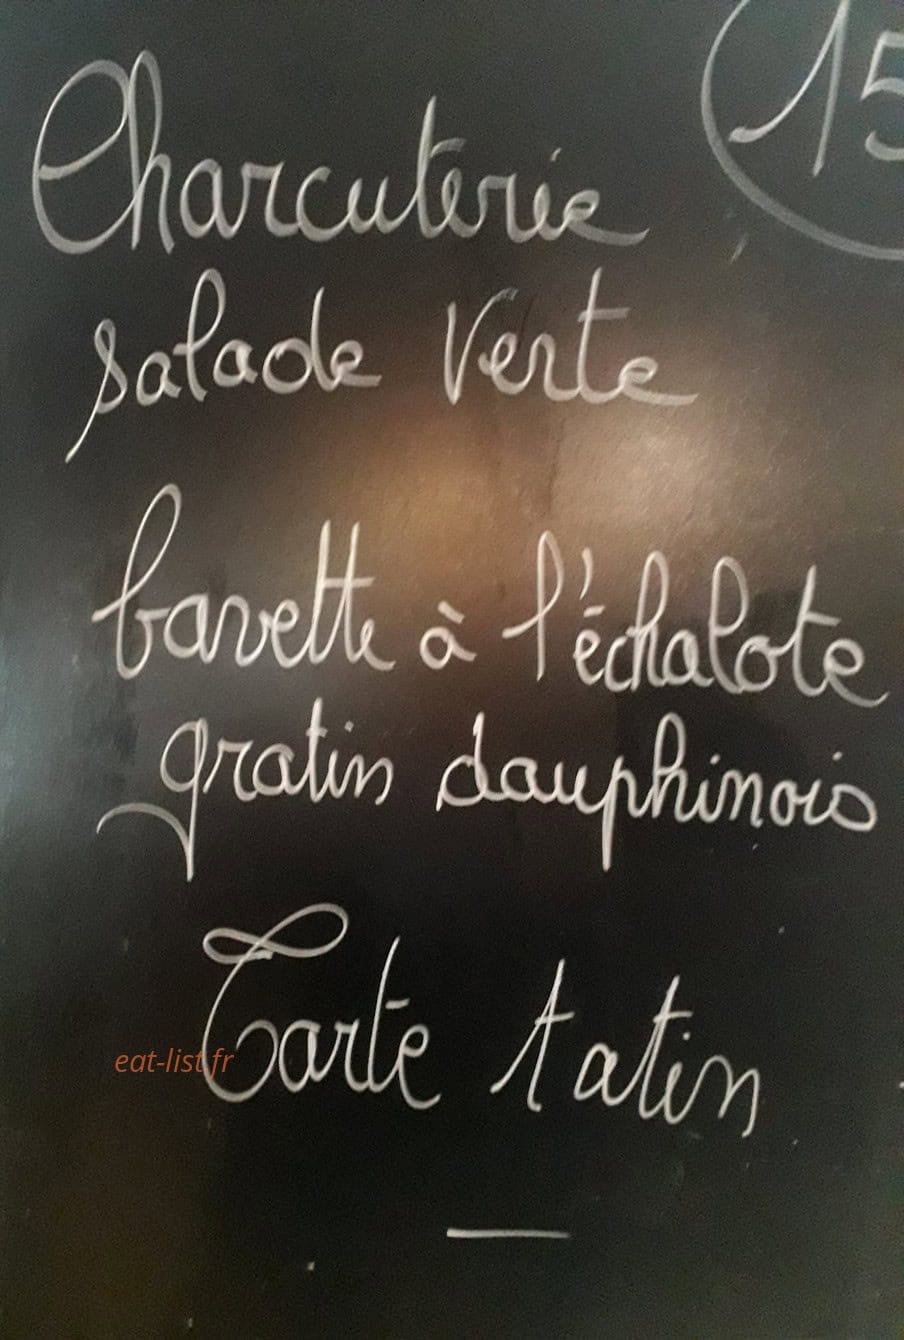 15
Charcuterie
salade verte
bavette à l'échalote
gratin dauphinois
Tarte tatin
eat-list.fr